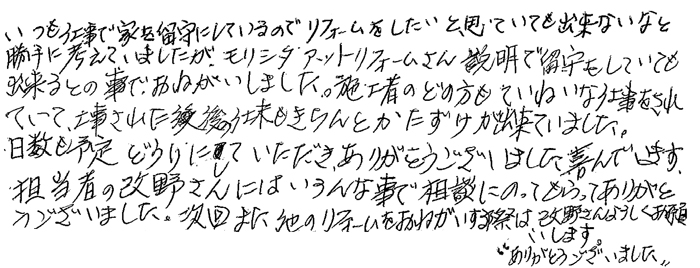 いつも仕事で家を留守にしているのでリフォームをしたいと思っていても出来ないなと
勝手に考えていましたが、モリシタアットリフォームさん説明で留守をしていても
出来るとの事で、おねがいしました。施工者のどの方もていねいな仕事をされ
ていて、工事された後の仕末もきちんとかたずけが出来ていました。
日数も予定どうりにしていただき、ありがとうございました。喜んでいます。
担当者の改野さんにはいろんな事で相談にのってもらってありがと
うございました。次回また他のリフォームをおねがいする際は改野さんよろしくお願
いします。
"ありがとうございました"